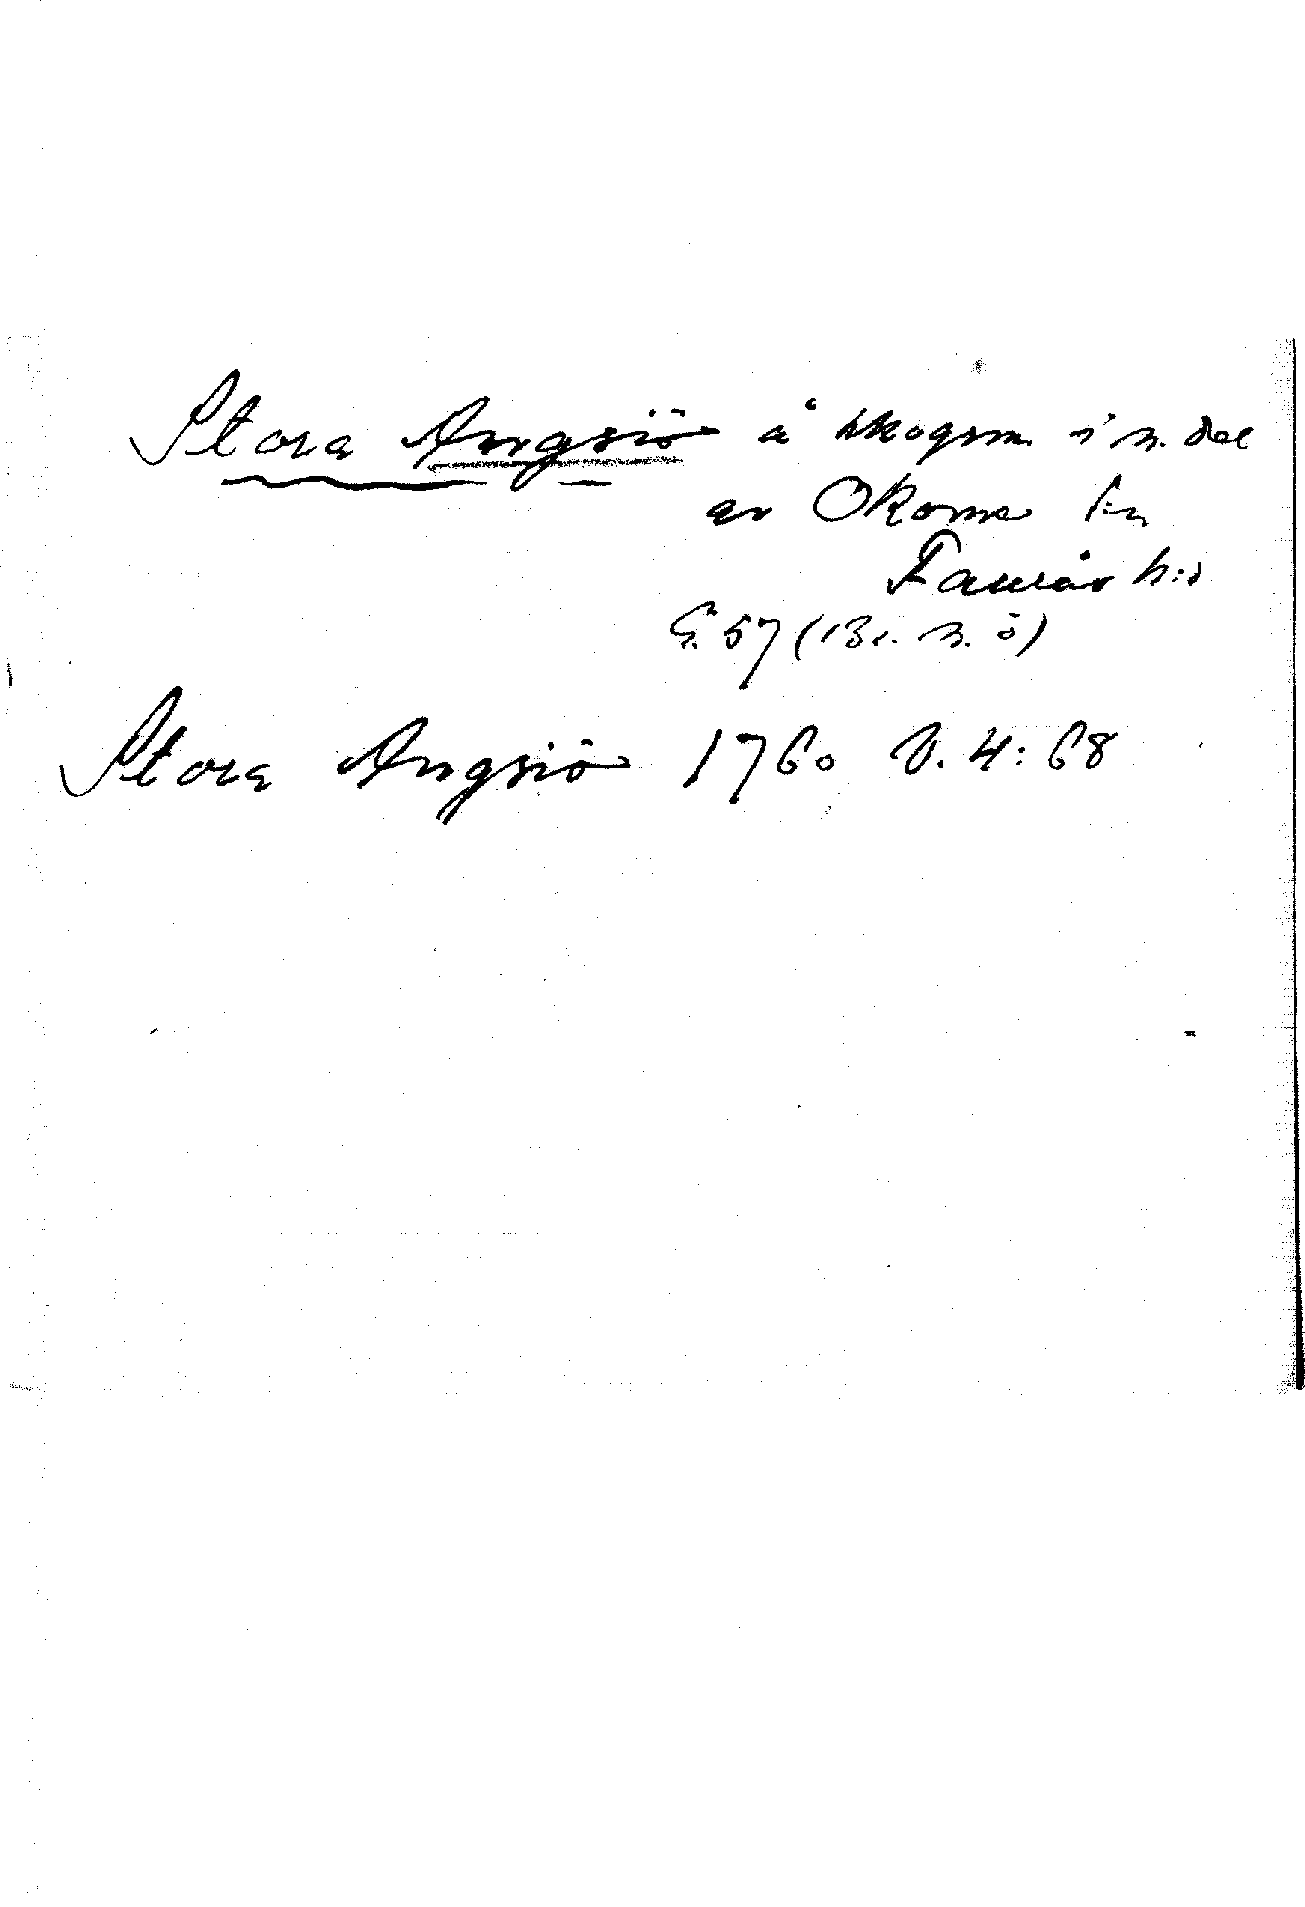 Stora Angsiö å skogen i n. del
av Okome sn
Faurås h:d
G. 57 (Br. n. ö)
Stora Angsiö 1760 V. 4:68